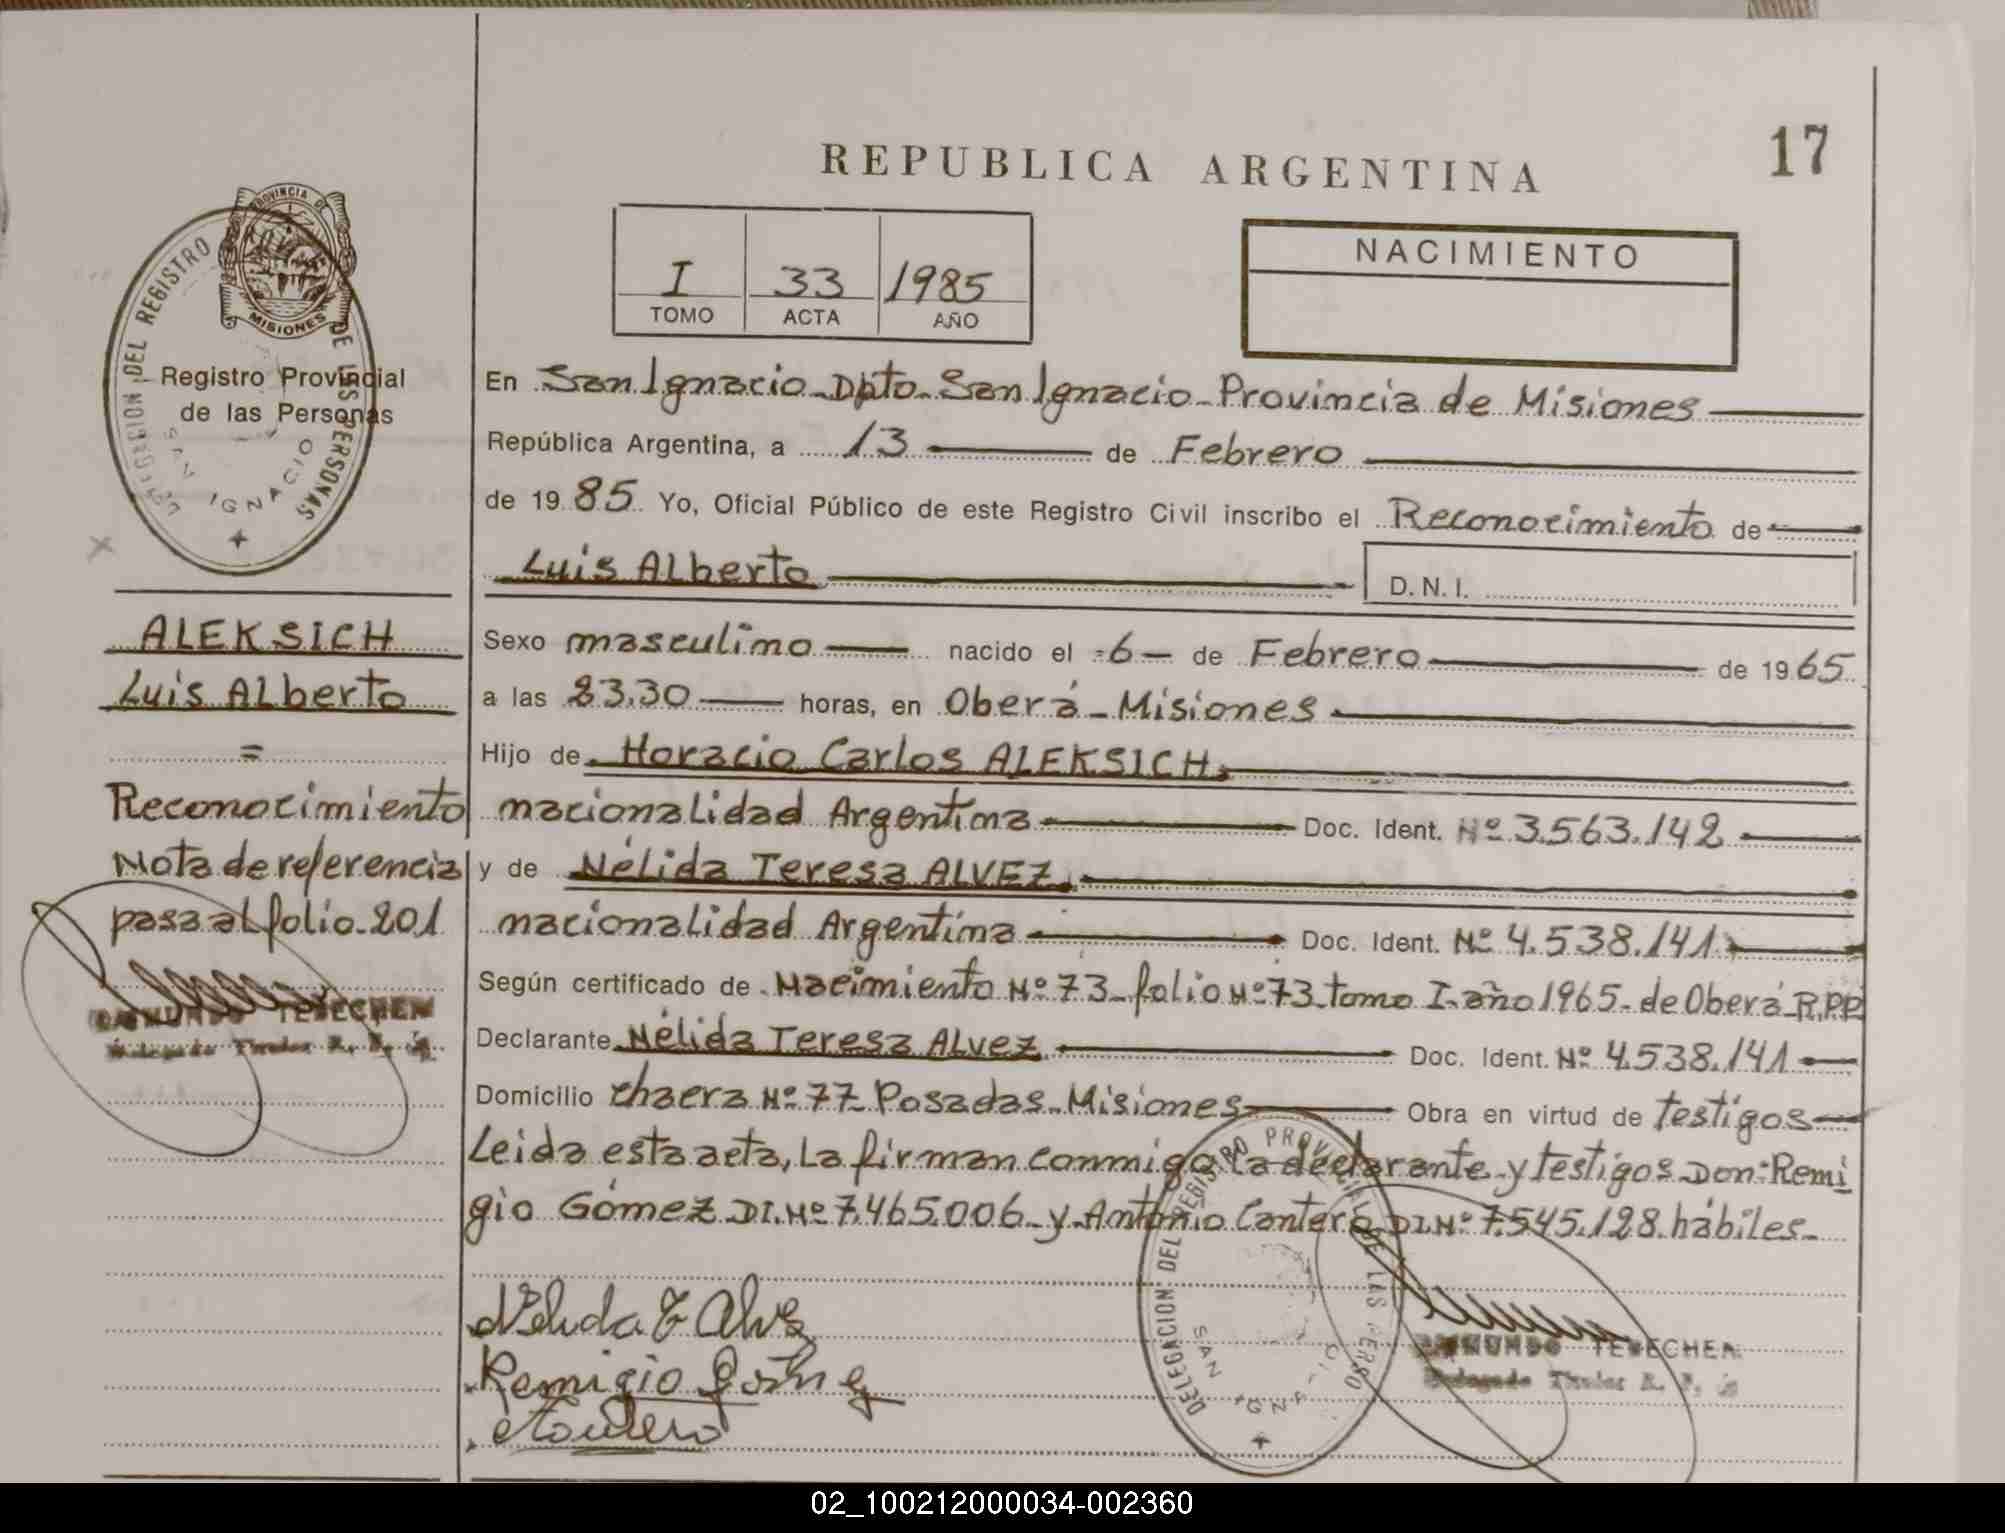 REPUBLICA ARGENTINA
17
I 33 1985
TOMO ACTA AÑO
NACIMIENTO
PROVINCIA DE
MISIONES
DELEGACION DEL REGISTRO DE LAS PERSONAS
SAN IGNACIO
Registro Provincial
de las Personas
ALEKSICH
Luis Alberto
=
Reconocimiento
Nota de referencia
pasa al folio 201
RAIMUNDO TESECHEN
Delegado Titular R. P. P.
En San Ignacio - Dpto. San Ignacio - Provincia de Misiones
República Argentina, a 13 de Febrero
de 1985 Yo, Oficial Público de este Registro Civil inscribo el Reconocimiento de
Luis Alberto D.N.I.
Sexo masculino nacido el =6— de Febrero de 1965
a las 23,30 horas, en Oberá - Misiones
Hijo de Horacio Carlos ALEKSICH,
nacionalidad Argentina Doc. Ident. Nº 3.563.142
y de Nélida Teresa ALVEZ,
nacionalidad Argentina Doc. Ident. Nº 4.538.141
Según certificado de Nacimiento Nº 73 - folio Nº 73 tomo I - año 1965 - de Oberá - R.P.P.
Declarante Nélida Teresa ALvez Doc. Ident. Nº 4.538.141
Domicilio chacra Nº 77 - Posadas - Misiones Obra en virtud de testigos
Leida esta acta, La firman conmigo la declarante y testigos Don: Remi
gio Gómez DI. Nº 7.465.006 - y Antonio Cantero DI Nº 7.545.128 hábiles -
Nélida T Alvez
Remigio Gómez
A Cantero
DELEGACION DEL REGISTRO PROVINCIAL DE LAS PERSO
SAN IGNACIO
RAIMUNDO TESECHEN
Delegado Titular R. P. P.
02_100212000034-002360